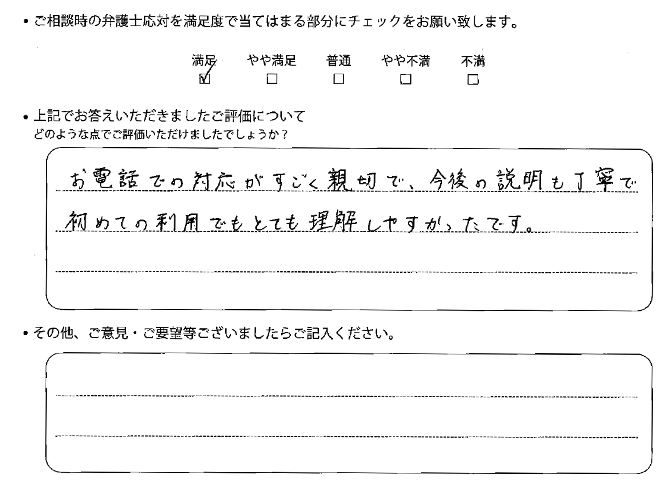 • ご相談時の弁護士応対を満足度で当てはまる部分にチェックをお願い致します。
満足 やや満足 普通 やや不満 不満
☑ □ □ □ □
• 上記でお答えいただきましたご評価について
どのような点でご評価いただけましたでしょうか？
お電話での対応がすごく親切で、今後の説明も丁寧で
初めての利用でもとても理解しやすかったです。
• その他、ご意見・ご要望等ございましたらご記入ください。